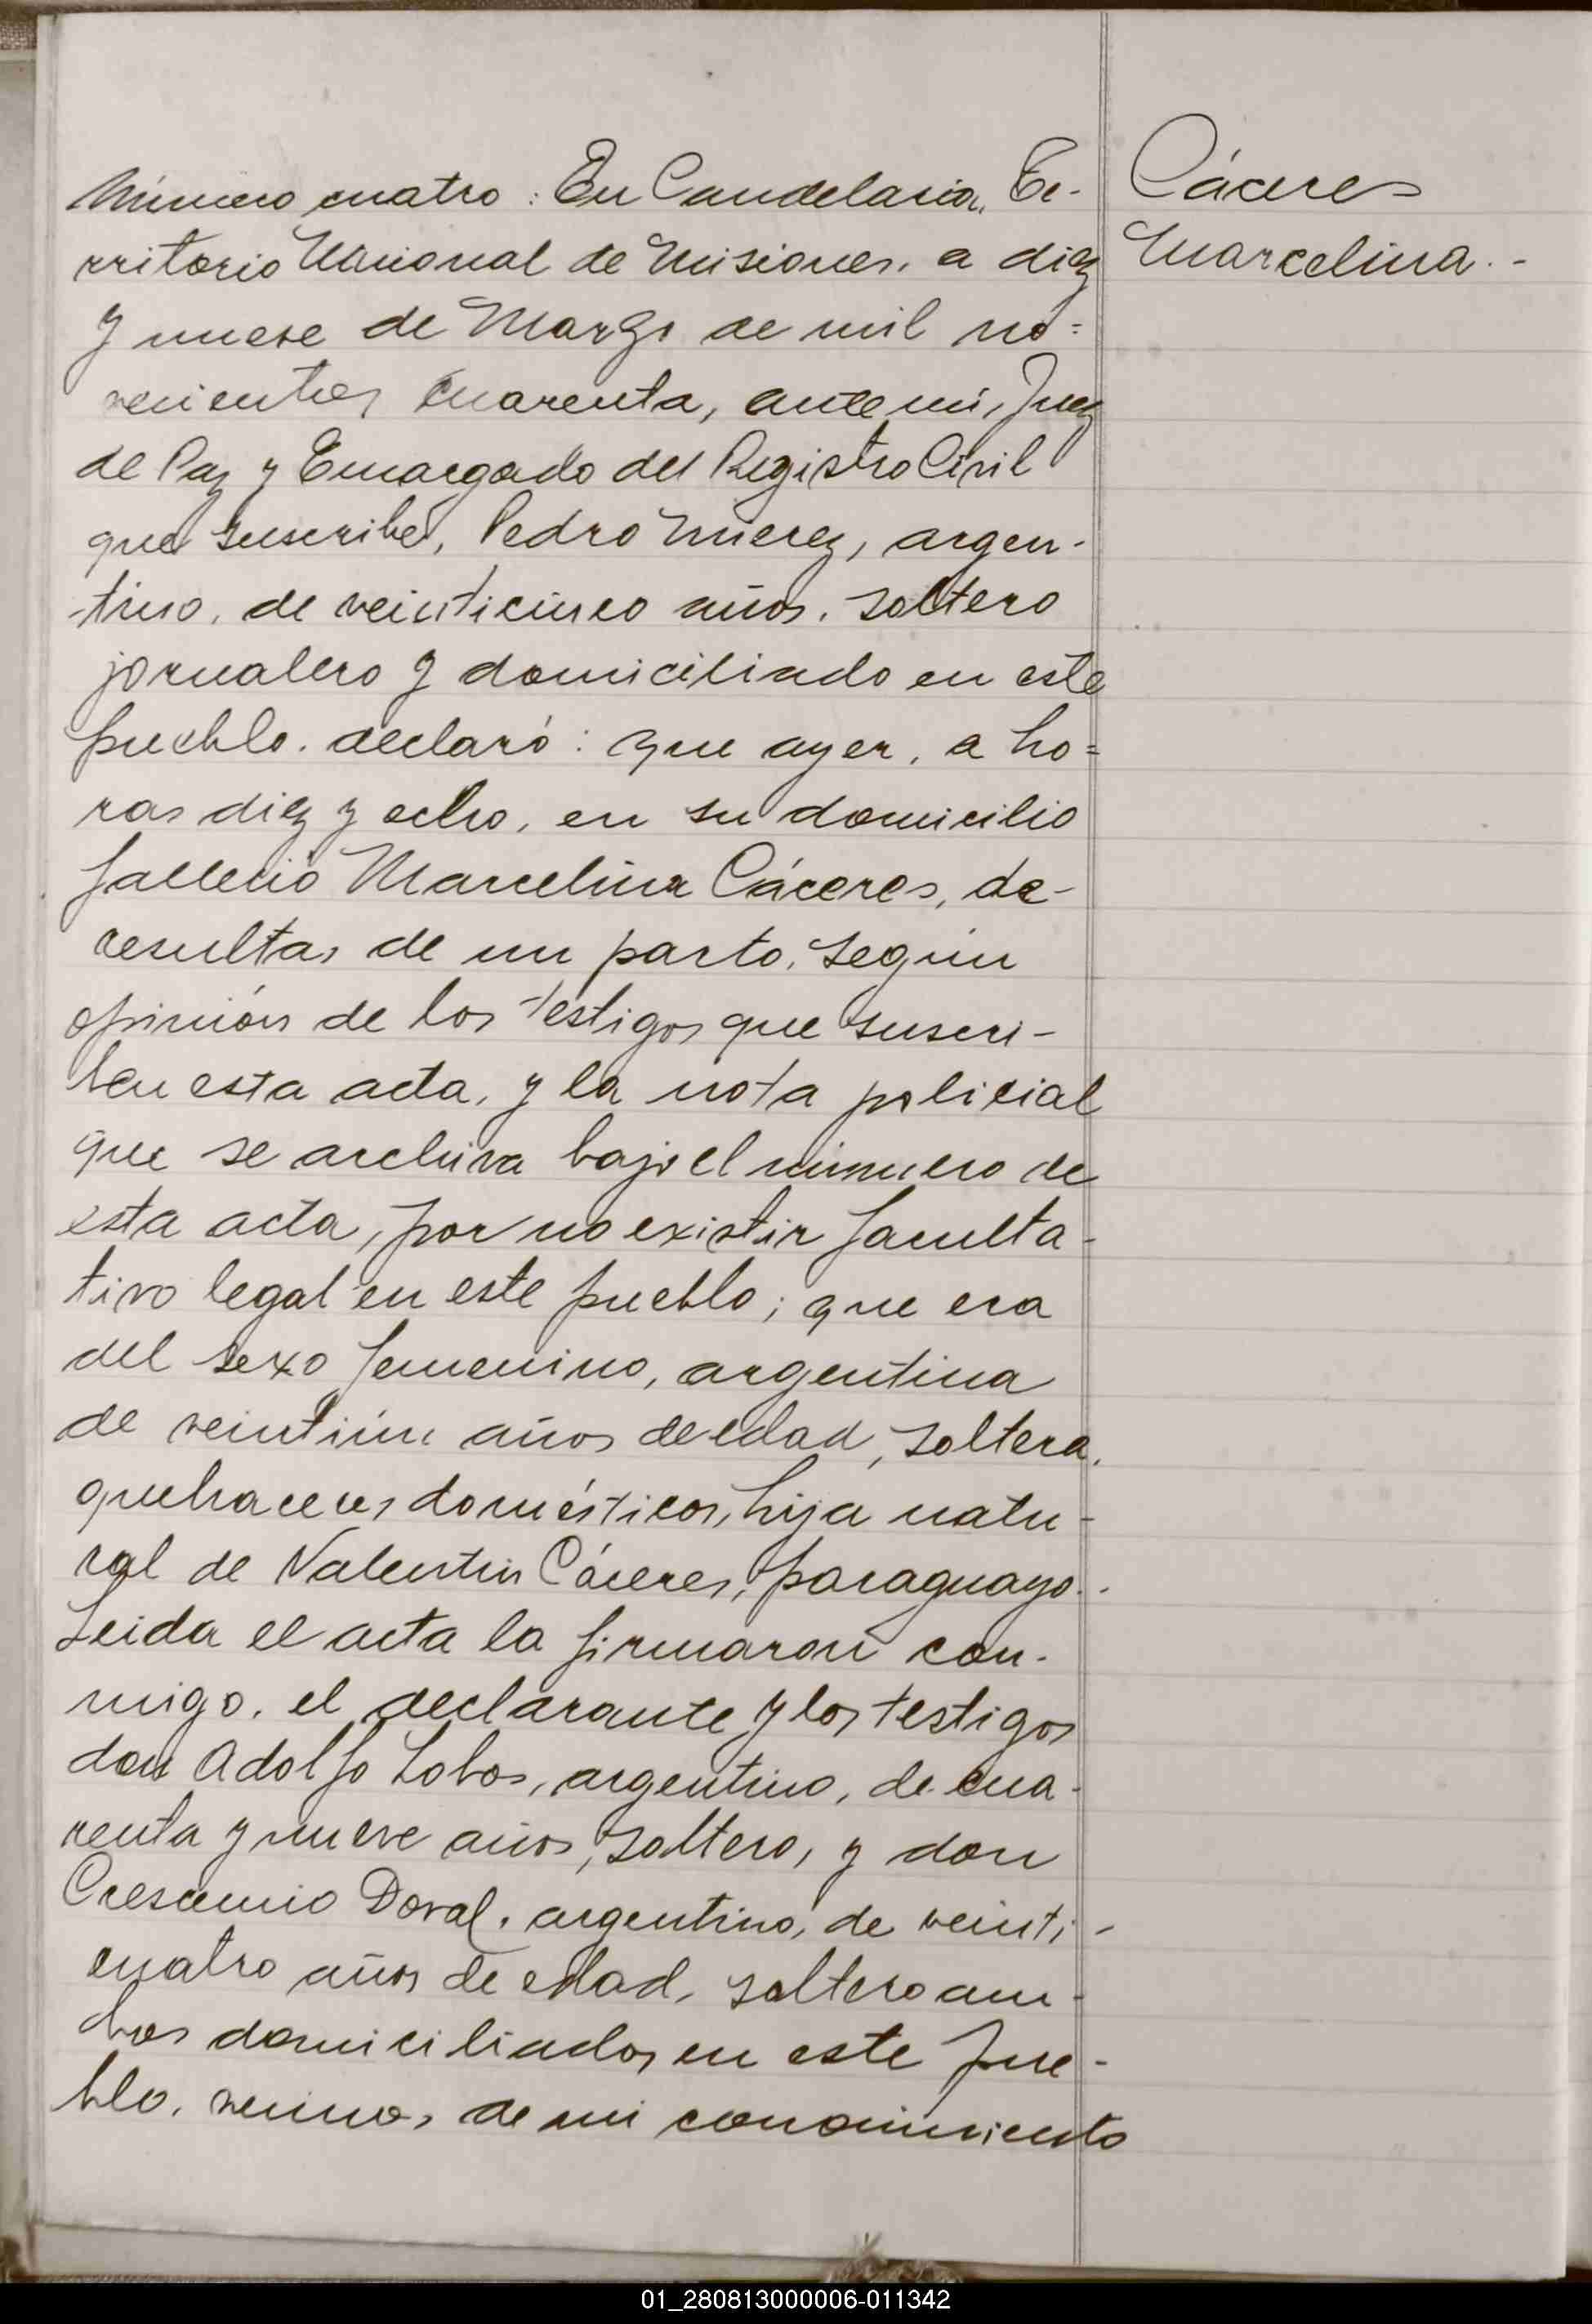 Número cuatro: En Candelaria, Te-
rritorio Nacional de Misiones, a diez
y nueve de Marzo de mil no=
vecientos cuarenta, ante mí, Juez
de Paz y Encargado del Registro Civil
que suscribe, Pedro Mierez, argen-
tino, de veinticinco años, soltero
jornalero y domiciliado en este
pueblo, declaró: que ayer, a ho=
ras diez y ocho, en su domicilio
falleció Marcelina Cáceres, de-
resultas de un parto, según
opinión de los testigos que suscri-
ben esta acta, y la nota policial
que se archiva bajo el número de
esta acta, por no existir faculta-
tivo legal en este pueblo; que era
del sexo femenino, argentina
de veintiún años de edad, soltera,
quehaceres domésticos, hija natu-
ral de Valentín Cáceres, paraguayo.-
Leida el acta la firmaron con-
migo, el declarante y los testigos
don Adolfo Lobos, argentino, de cua-
renta y nueve años, soltero, y don
Doval, argentino, de veinti-
cuatro años de edad, soltero am-
bos domiciliados en este pue-
blo, vecinos de mi conocimiento
Cáceres
Marcelina.-
01_280813000006-011342